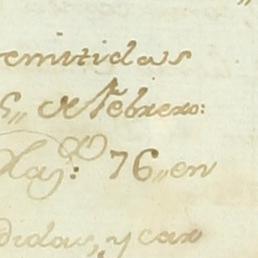 emitidas
5,, de Febrero:
Caj: 76,, en
didas, y car